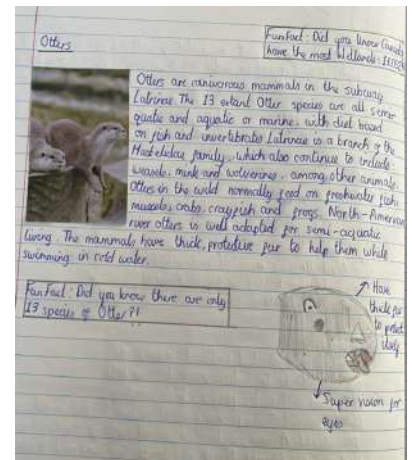 Otters
Fun Fact: Did you know Canada
have the most
Otters are carnivorous mammals in the subway
Lutrinae. The 13 extant Otter species are all semi
quatic and aquatic or marine, with diet based
on fish and invertebrates Lutrinae is a branch of the
family, which also continue to include
weasels, mink and wolverines, among other animals.
Otters in the wild normally feed on freshwater fish,
mussels, crabs, crayfish and frogs. North-American
river otters is well adapted for semi-aquatic
living. The mammals have thick, protective fur to help them while
swimming in cold water.
Fun Fact: Did you know there are only
13 species of Otter?!
Have
thick fur
to protect
body
Super vision for
eyes